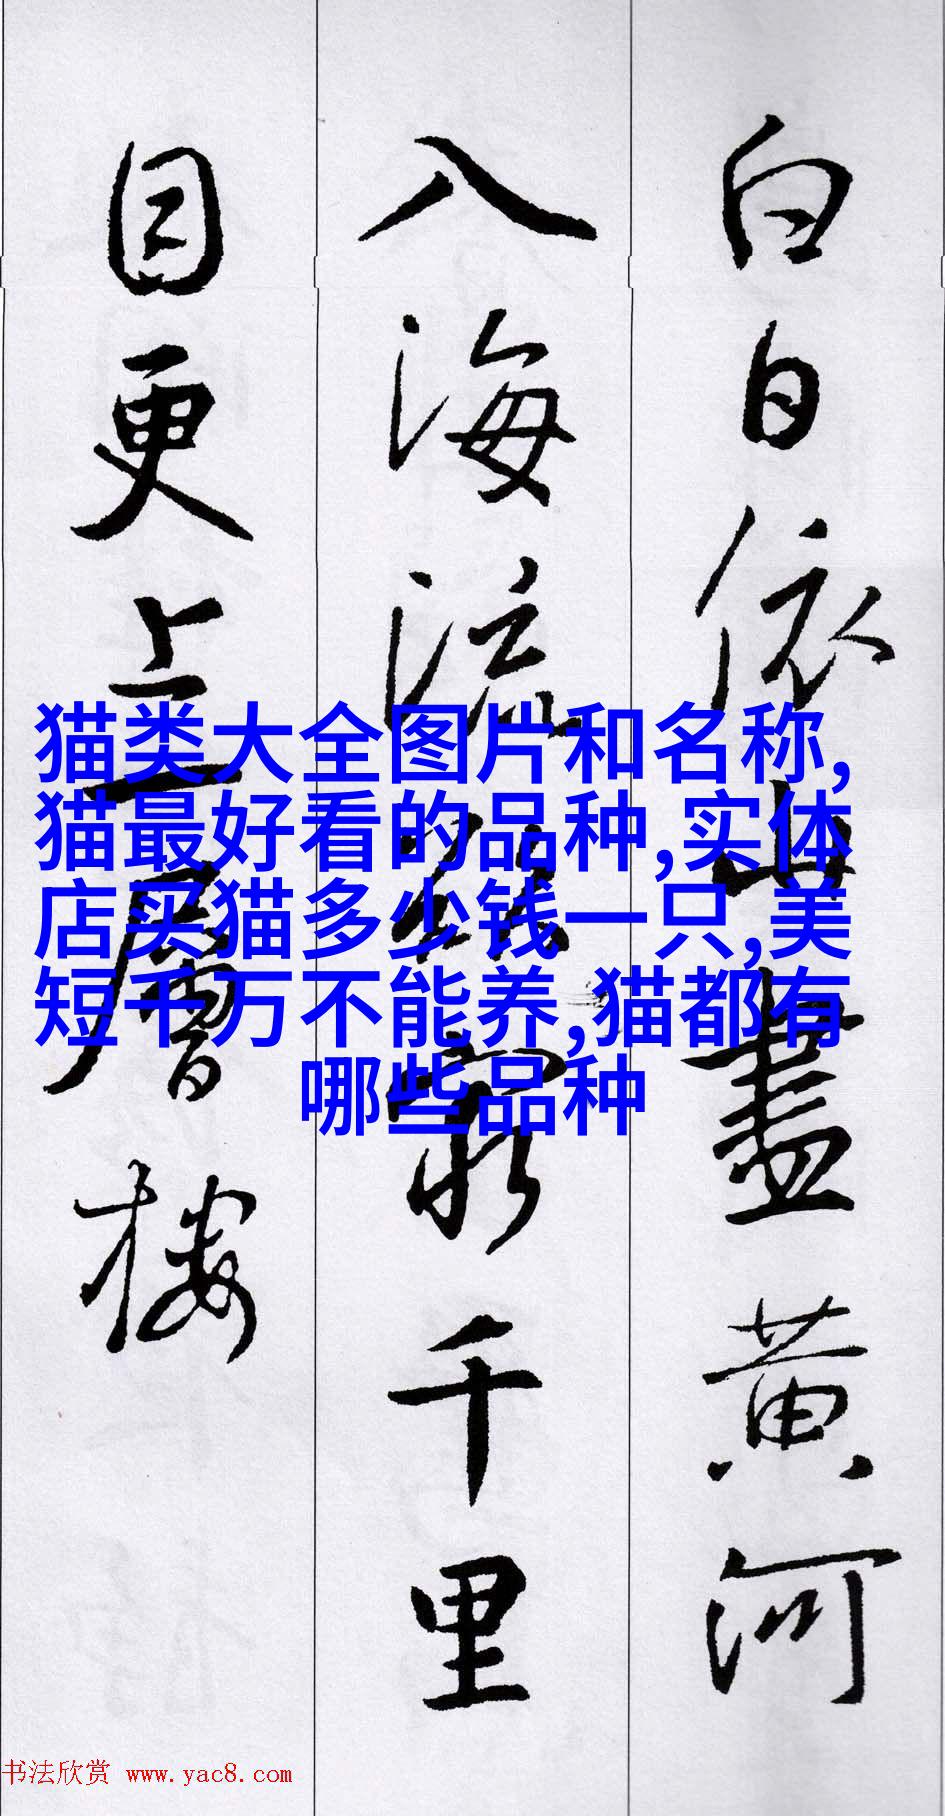 白日依山盡黄河
入海流欲窮千里
目更上一層樓
猫类大全图片和名称,
猫最好看的品种,实体
店买猫多少钱一只,美
短千万不能养,猫都有
哪些品种
书法欣赏 www.yac8.com